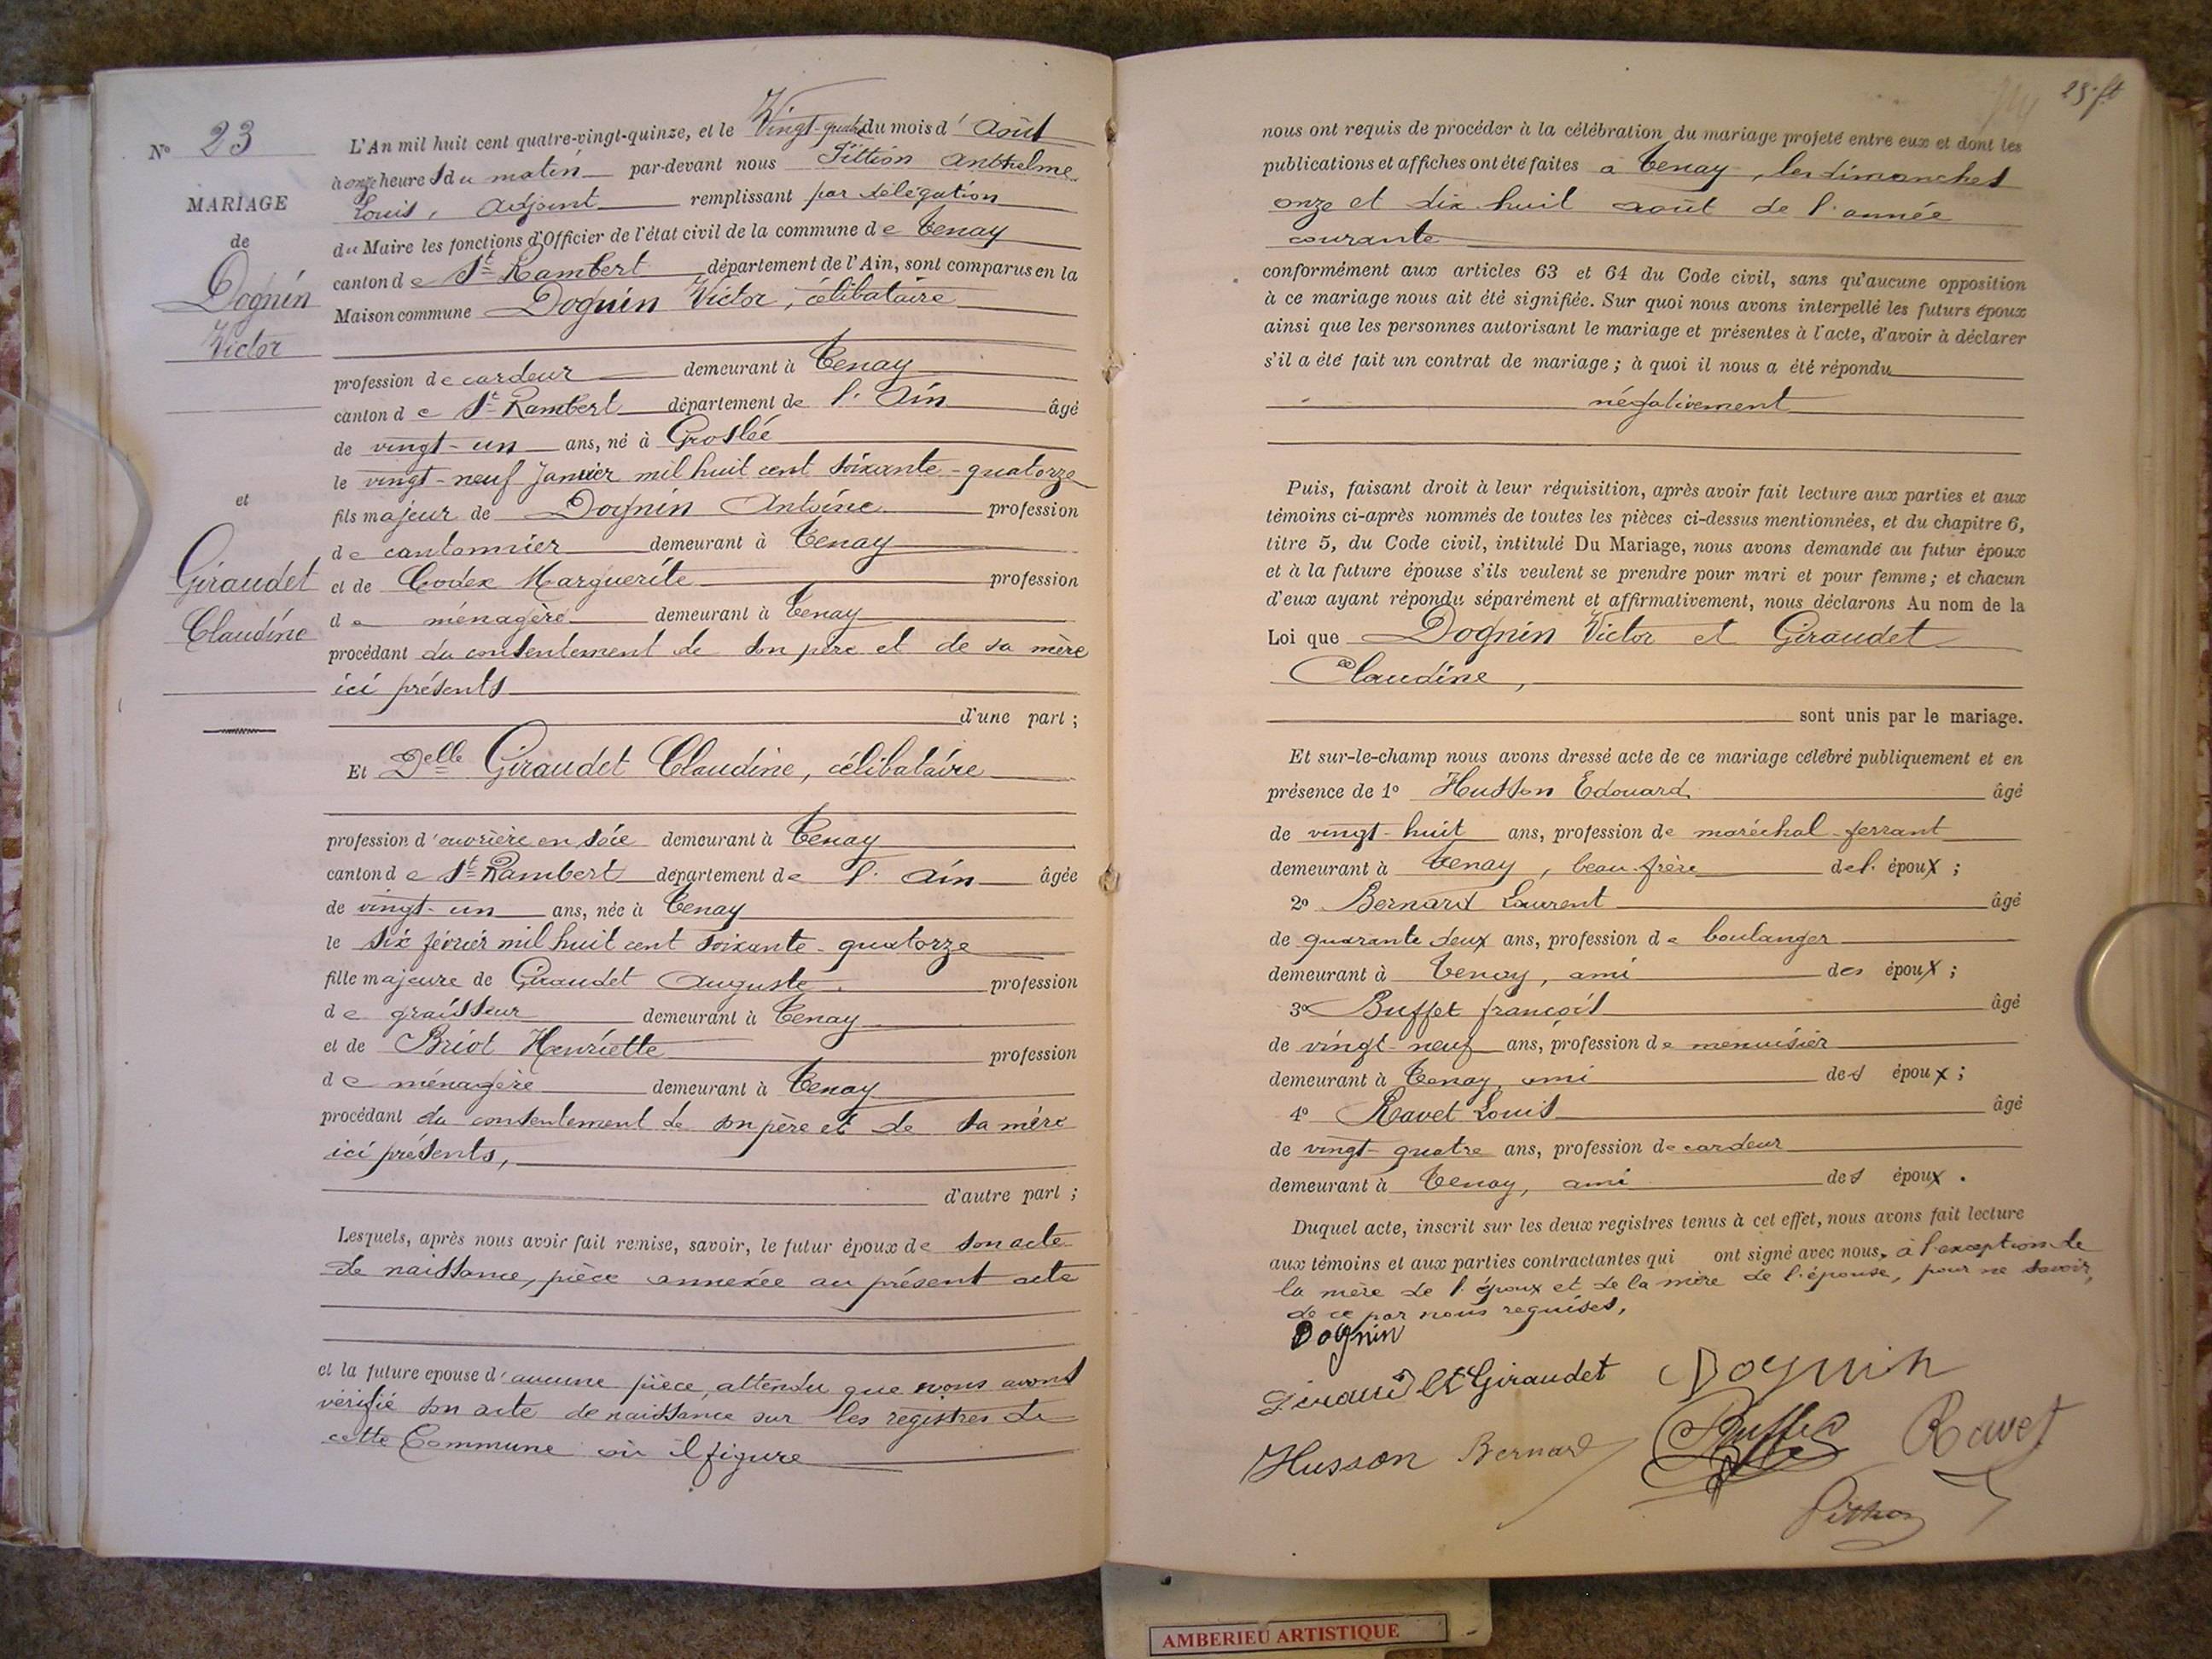 No 23
MARIAGE
de
Dognin
Victor
et
Giraudet
Claudine
L'An mil huit cent quatre-vingt-quinze, et le Vingt-quatre du mois d'Août
à onze heures du matin par-devant nous Pittion Anthelme
Louis, Adjoint remplissant par délégation
du Maire les fonctions d'Officier de l'état civil de la commune de Tenay
canton de St Rambert département de l'Ain, sont comparus en la
Maison commune Dognin Victor, célibataire
profession de cardeur demeurant à Tenay
canton de St Rambert département de l'Ain âgé
de vingt-un ans, né à Groslée
le vingt-neuf Janvier mil huit cent soixante-quatorze
fils majeur de Dognin Antoine profession
de cantonnier demeurant à Tenay
et de Codex Marguerite profession
de ménagère demeurant à Tenay
procédant du consentement de son père et de sa mère
ici présents
d'une part ;
Et Delle Giraudet Claudine, célibataire
profession d'ouvrière en soie demeurant à Tenay
canton de St Rambert département de l'Ain âgée
de vingt-un ans, née à Tenay
le six février mil huit cent soixante-quatorze
fille majeure de Giraudet Auguste profession
de graisseur demeurant à Tenay
et de Briot Henriette profession
de ménagère demeurant à Tenay
procédant du consentement de son père et de sa mère
ici présents,
d'autre part ;
Lesquels, après nous avoir fait remise, savoir, le futur époux de son acte
de naissance, pièce annexée au présent acte
et la future epouse d'aucune pièce, attendu que nous avons
vérifié son acte de naissance sur les registres de
cette Commune où il figure
nous ont requis de procéder à la célébration du mariage projeté entre eux et dont les
publications et affiches ont été faites à Tenay, les dimanches
onze et dix huit août de l'année
courante
conformément aux articles 63 et 64 du Code civil, sans qu'aucune opposition
à ce mariage nous ait été signifiée. Sur quoi nous avons interpellé les futurs époux
ainsi que les personnes autorisant le mariage et présentes à l'acte, d'avoir à déclarer
s'il a été fait un contrat de mariage ; à quoi il nous a été répondu
négativement
Puis, faisant droit à leur réquisition, après avoir fait lecture aux parties et aux
témoins ci-après nommés de toutes les pièces ci-dessus mentionnées, et du chapitre 6,
titre 5, du Code civil, intitulé Du Mariage, nous avons demandé au futur époux
et à la future épouse s'ils veulent se prendre pour mari et pour femme ; et chacun
d'eux ayant répondu séparément et affirmativement, nous déclarons Au nom de la
Loi que Dognin Victor et Giraudet
Claudine,
sont unis par le mariage.
Et sur-le-champ nous avons dressé acte de ce mariage célébré publiquement et en
présence de 1o Husson Edouard âgé
de vingt-huit ans, profession de maréchal-ferrant
demeurant à Tenay, beau-frère de l'époux ;
2o Bernard Laurent âgé
de quarante deux ans, profession de boulanger
demeurant à Tenay, ami des époux ;
3o Buffet françois âgé
de vingt-neuf ans, profession de menuisier
demeurant à Tenay, ami des époux ;
4o Ravet Louis âgé
de vingt-quatre ans, profession de cardeur
demeurant à Tenay, ami des époux.
Duquel acte, inscrit sur les deux registres tenus à cet effet, nous avons fait lecture
aux témoins et aux parties contractantes qui ont signé avec nous, à l'exception de
la mère de l'époux et de la mère de l'épouse, pour ne savoir,
de ce par nous requises,
Dognin
Giraudet Dognin
Husson Bernard Buffet Ravet
Pittion
AMBERIEU ARTISTIQUE